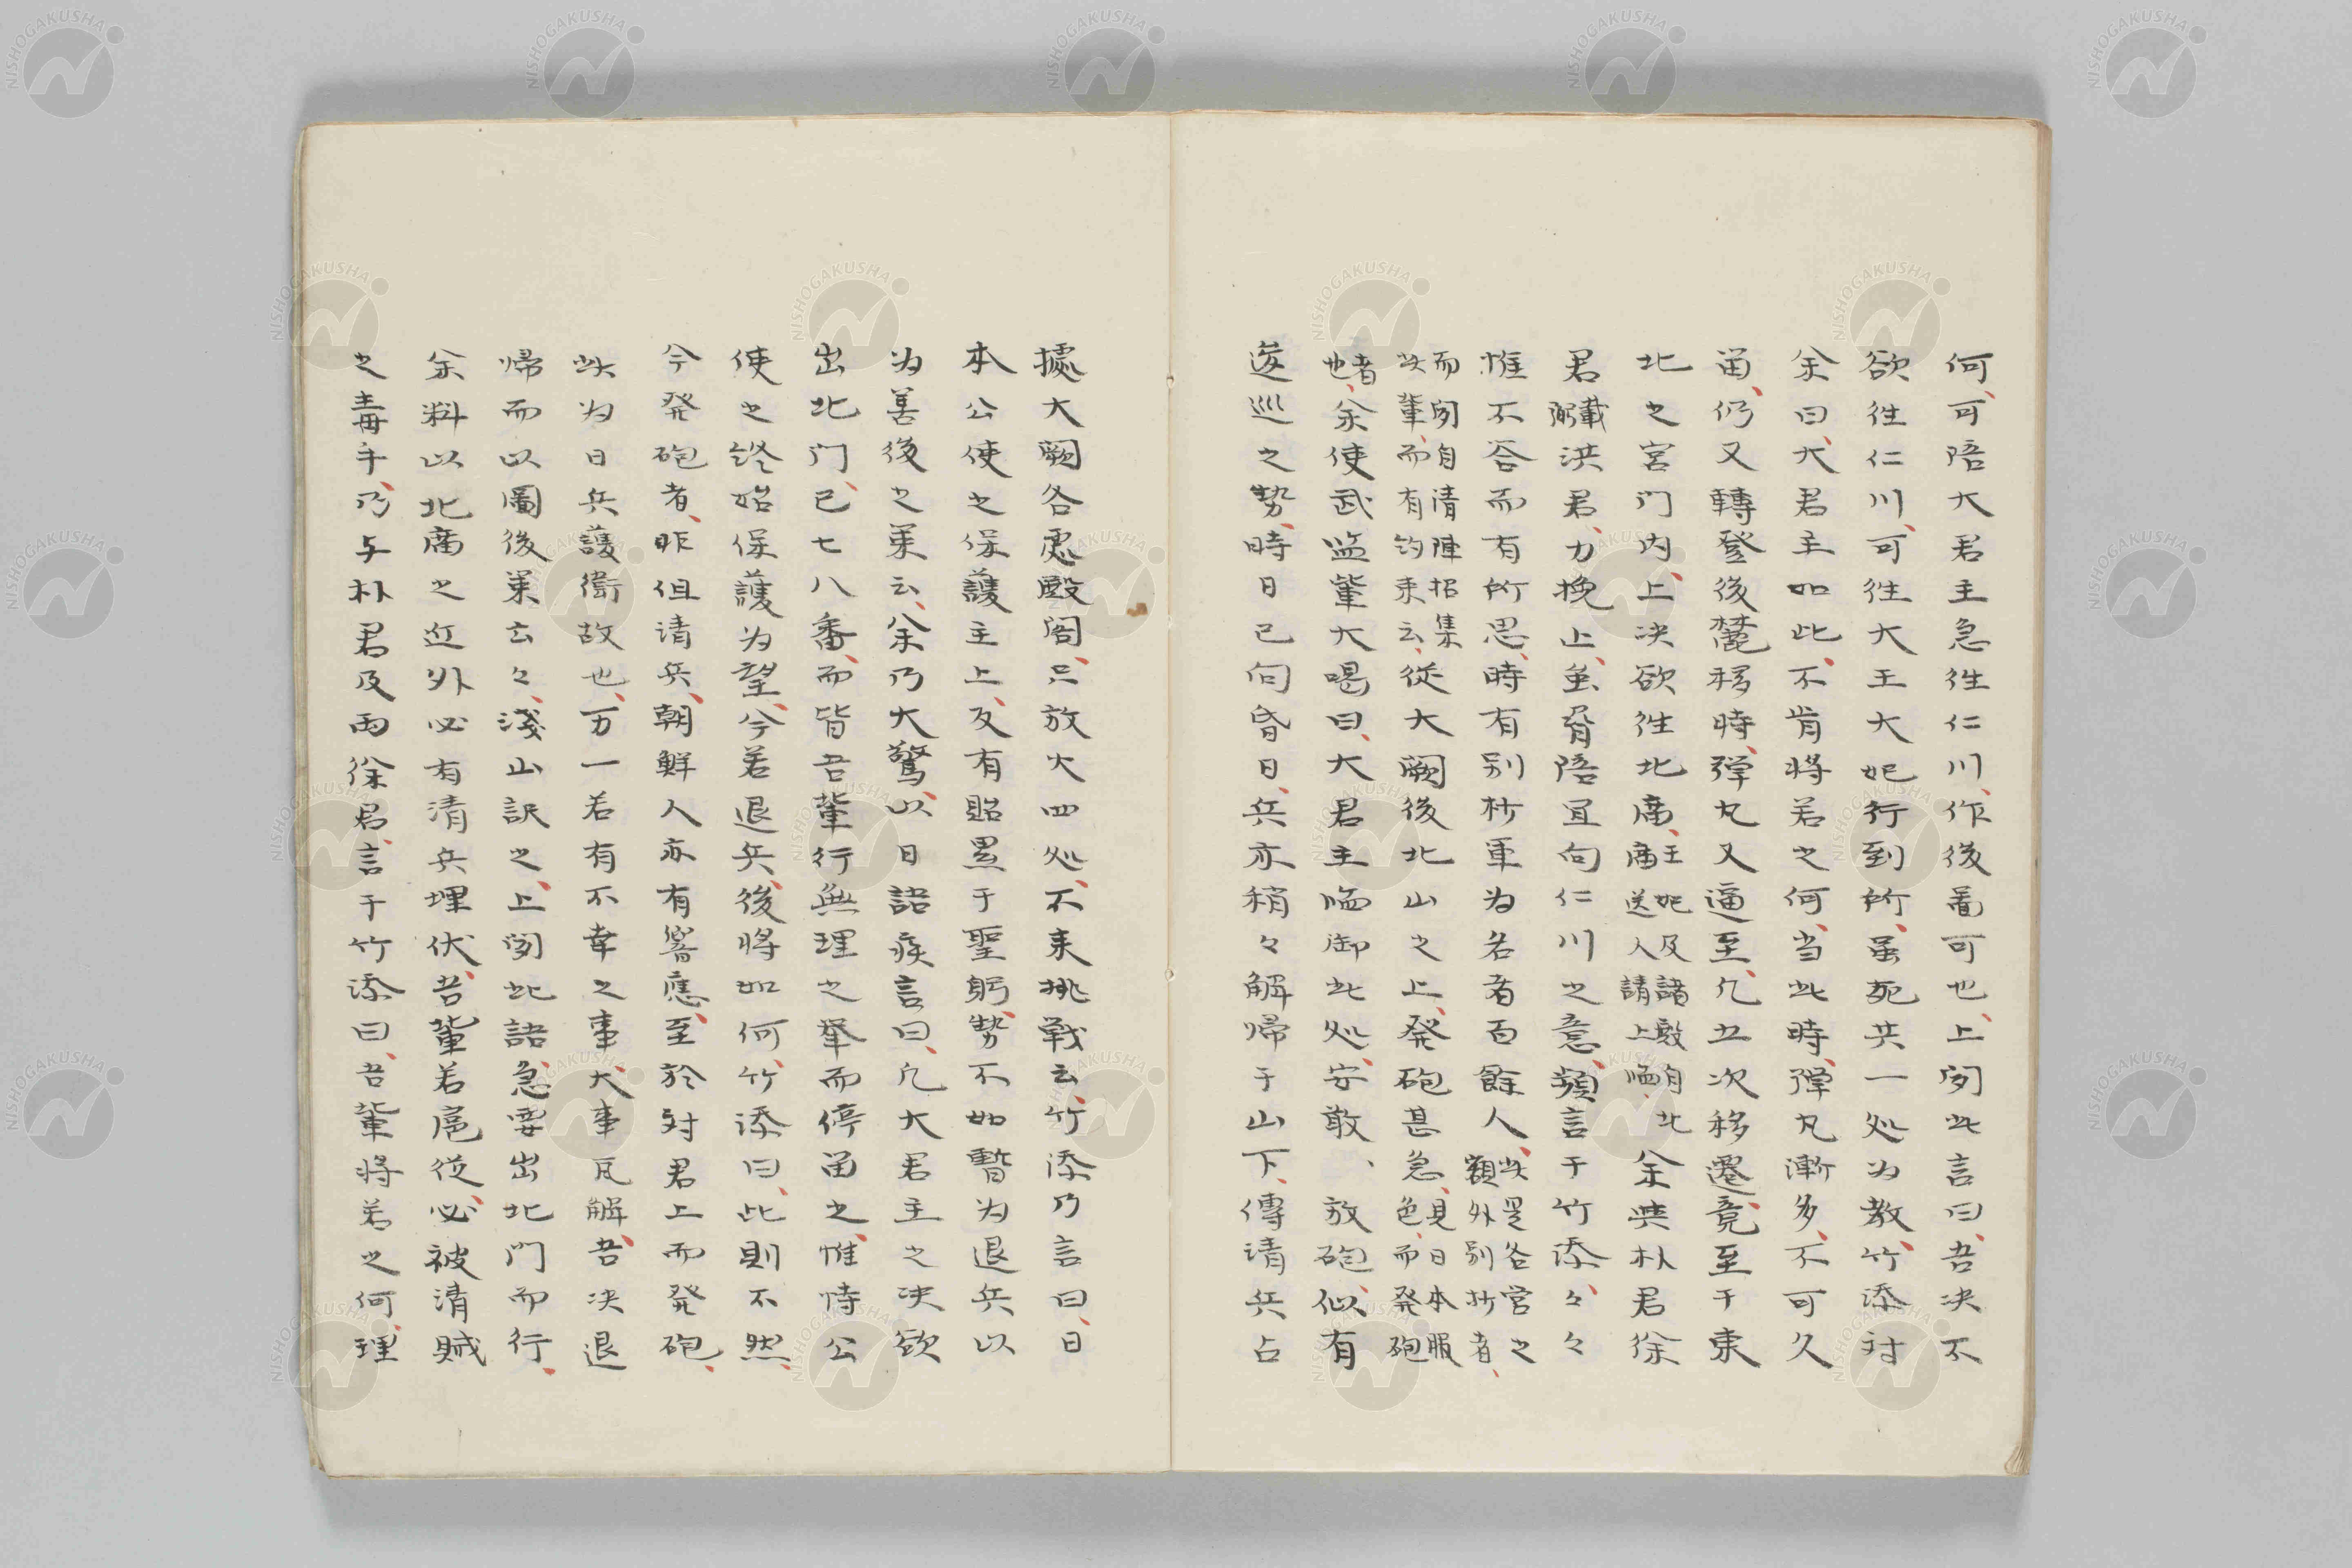 何、可陪大君主急徃仁川、作後着可也、上闻此言曰、吾决不
欲徃仁川、可徃大王大妃行到所、虽死共一处为教、竹添对
余曰、大君主如此、不肯将若之何、当此時、弹丸漸多、不可久
留、仍又轉登後麓移時、弹丸又逼至、凡五次移遷、竟至于東
北之宮门内、上决欲徃北廟、廟王妃及諸送人請上臨余與朴君徐
君載弼洪君、力挽止、虽脅陪宜向仁川之意、頻言于竹添、々々
惟不答而有所思、時有别抄軍为名者百餘人、此是各营之額外别抄者、
而闻自清陣招集此輩、而有约来云、從大闕後北山之上、発砲甚急、見日本服色、而発砲
者也、余使武监輩大喝曰、大君主臨御此处、安敢放砲、似有
逡巡之勢、時日已向昏日、兵亦稍々解帰于山下、傳清兵占
據大闕各處殿阁、只放火四处、不来挑戦云、竹添乃言曰、日
本公使之保護主上、反有貽累于聖躬、勢不如暫为退兵以
为善後之策云、余乃大驚、以日語疾言曰、凡大君主之决欲
出北门、已七八番、而皆吾輩行無理之挙而停留之、惟恃公
使之終始保護为望、今若退兵、後将如何、竹添曰、此則不然、
今発砲者、昨但请兵、朝鮮人亦有響應、至於对君上而発砲、
此为日兵護衛故也、万一若有不幸之事、大事瓦解、吾决退
帰而以圖後策云々、淺山訳之、上闻此語、急要出北門而行、
余料以北廟之近外必有清兵埋伏、吾輩若扈從、必被清賊
之毒手、乃与朴君及両徐君、言于竹添曰、吾輩将若之何、理